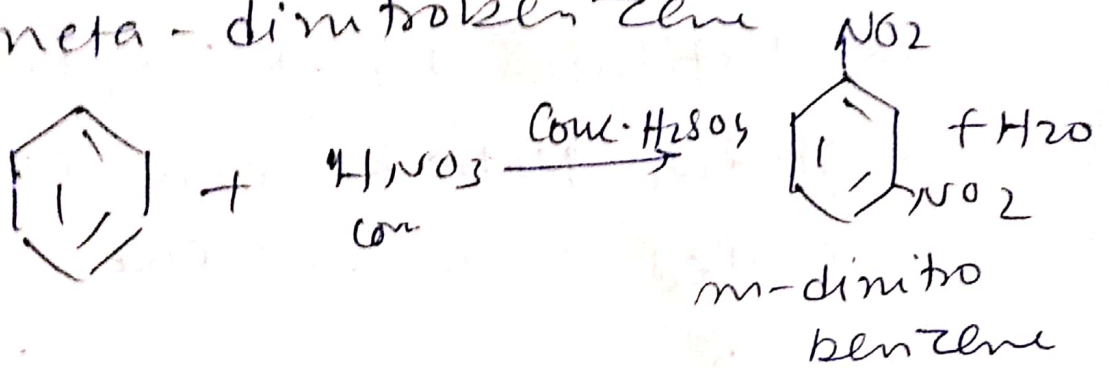 meta - dinitrobenzene
NO2
+ HNO3 Conc. H2SO4 + H2O
con
NO2
m-dinitro
benzene